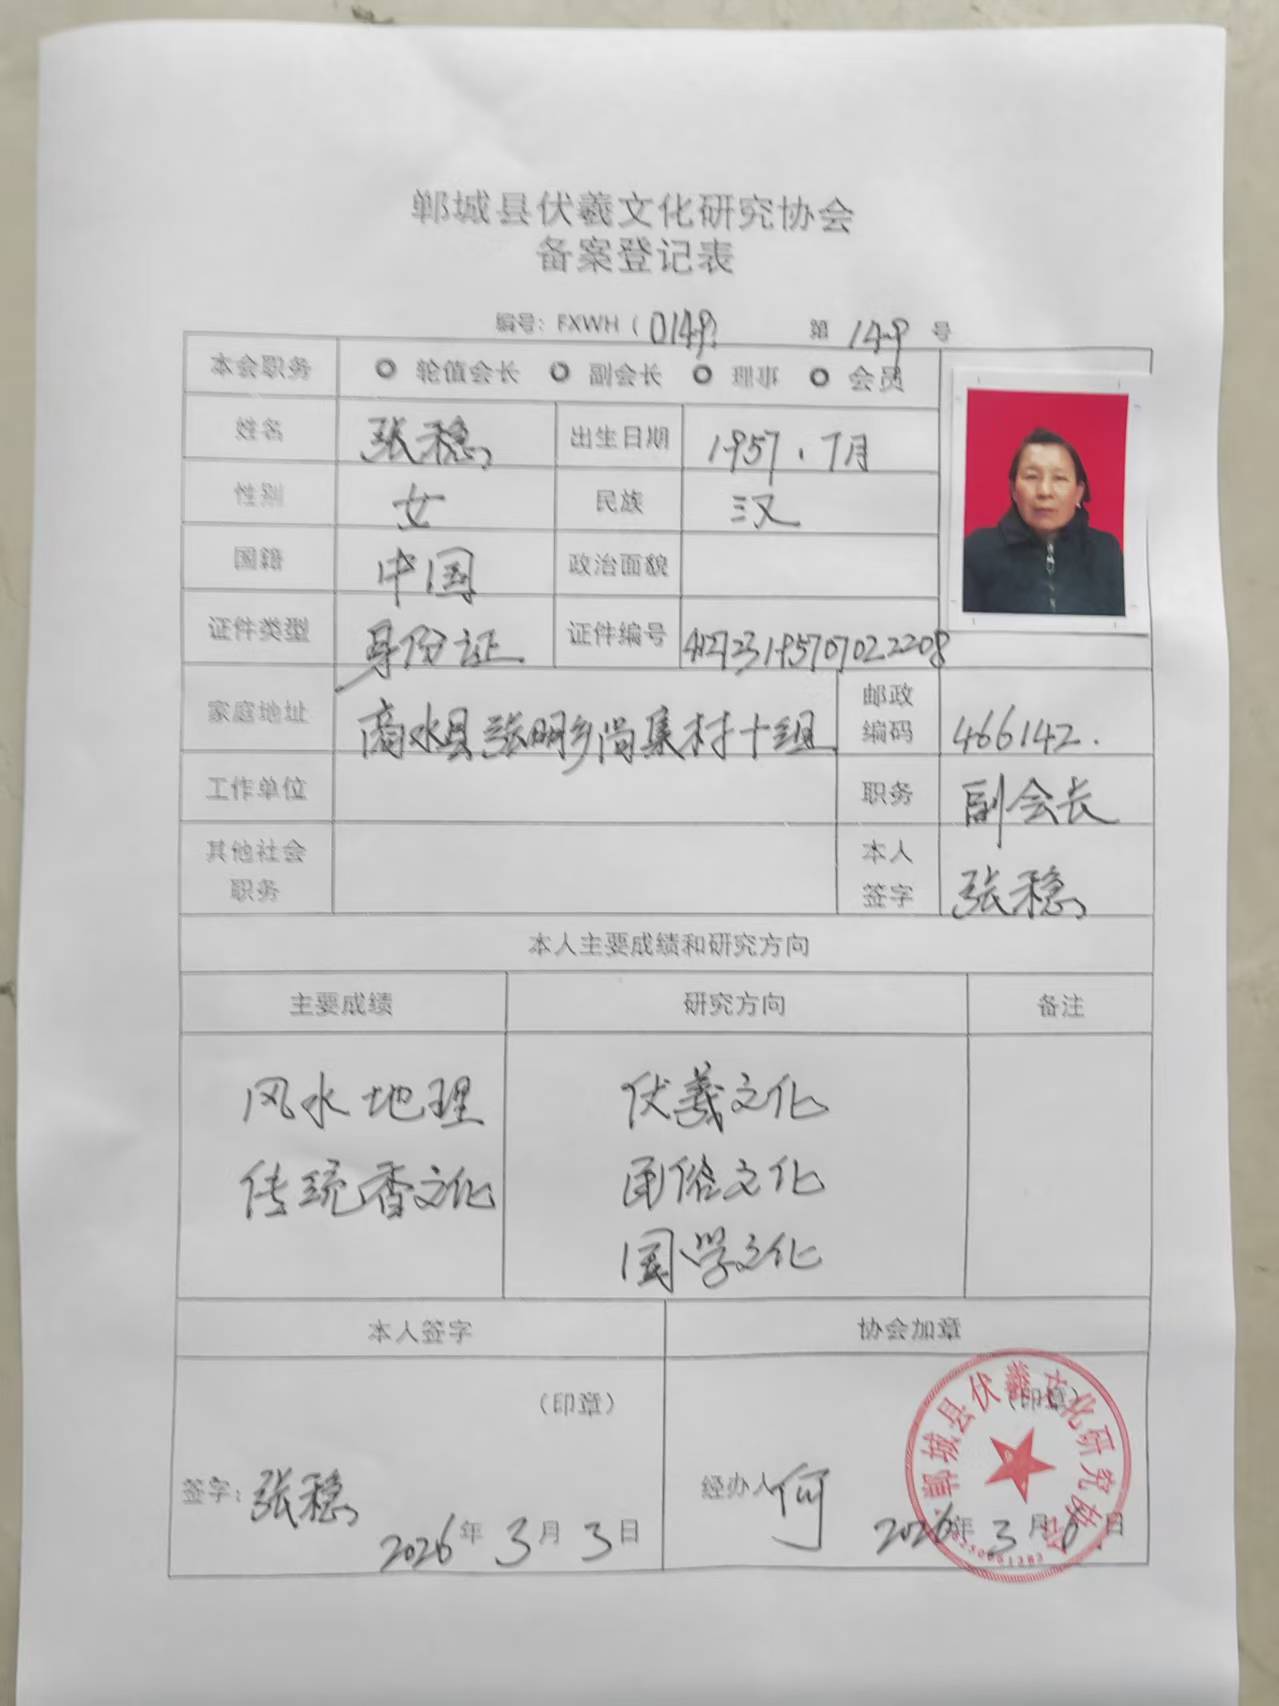 郸城县伏羲文化研究协会
备案登记表
编号：FXWH（0149） 第 149 号
本会职务 轮值会长 副会长 理事 会员
姓名 张稳 出生日期 1957.7月
性别 女 民族 汉
国籍 中国 政治面貌
证件类型 身份证 证件编号 412723195707022208
家庭地址 商水县张明乡尚集村十组 邮政编码 466142.
工作单位 职务 副会长
其他社会职务 本人签字 张稳
本人主要成绩和研究方向
主要成绩 研究方向 备注
风水地理 伏羲文化
传统香文化 民俗文化
国学文化
本人签字 协会加章
（印章） （印章）
签字：张稳 经办人 何
2026年3月3日 2026年3月 日
郸城县伏羲文化研究协会